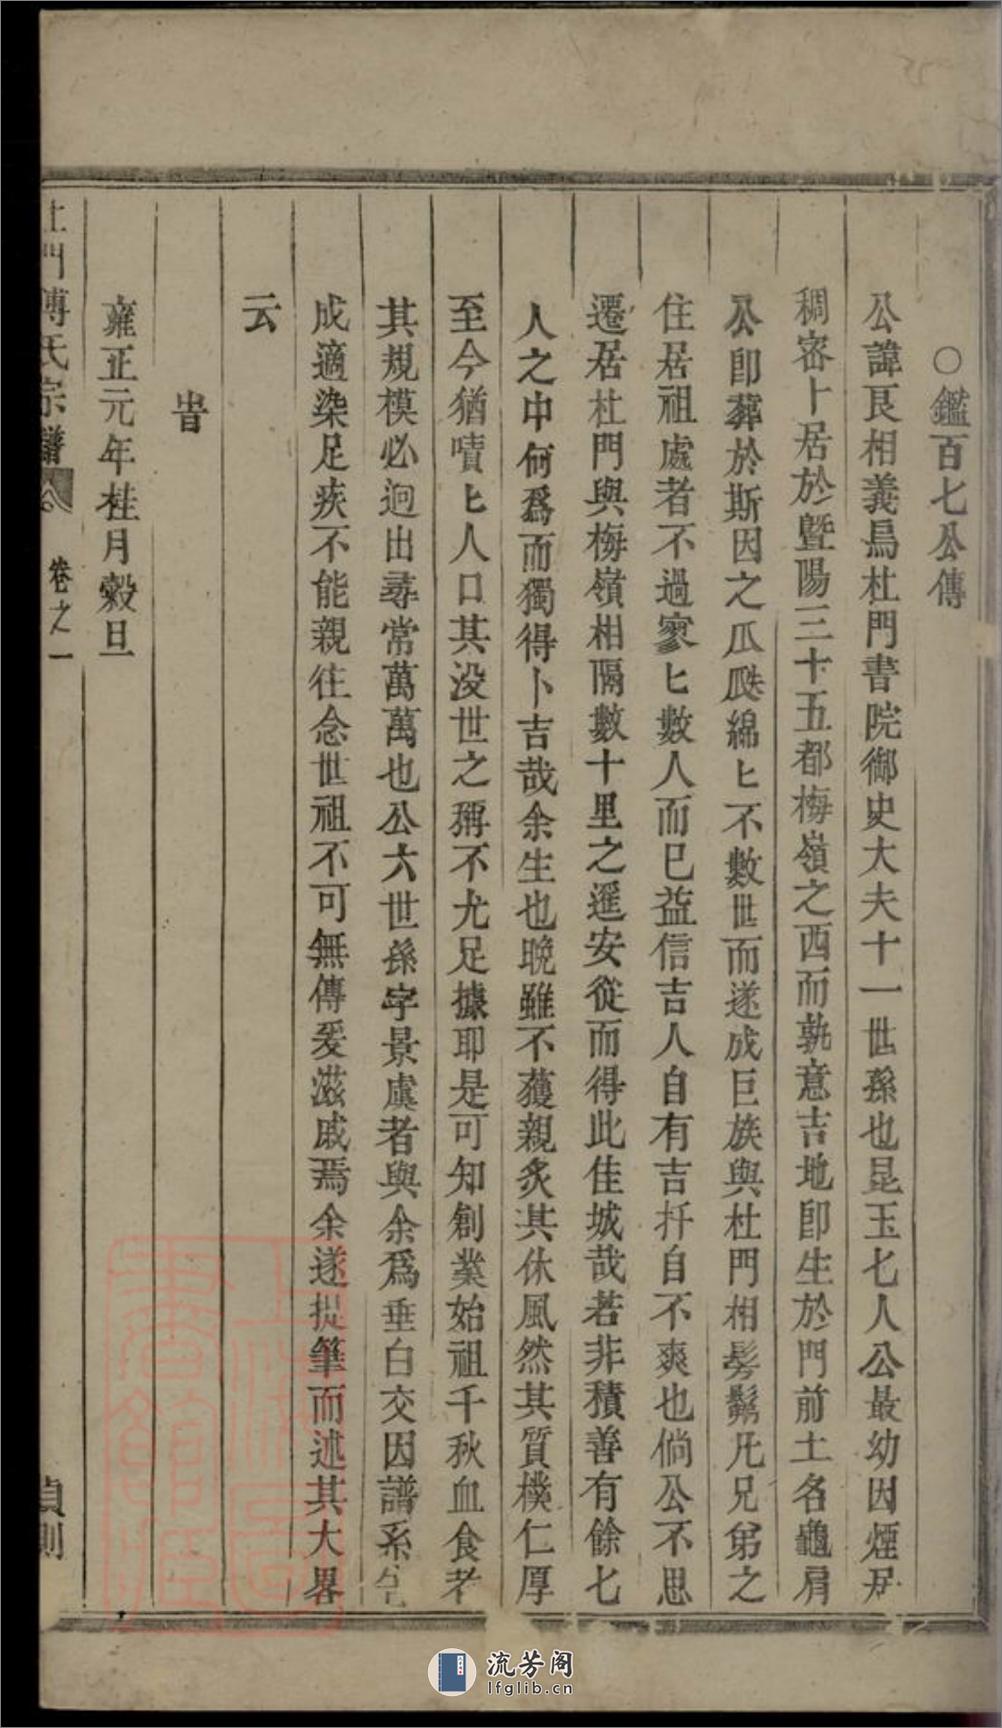 ○鑑百七公傳
公諱艮相義烏杜門書院御史大夫十一世孫也昆玉七人公最幼因煙居
稠密卜居於暨陽三十五都梅嶺之西而孰意吉地卽生於門前土名龜肩
公卽葬於斯因之瓜瓞綿匕不數世而遂成巨族與杜門相髣髴凡兄弟之
住居祖處者不過寥匕數人而已益信吉人自有吉扦自不爽也倘公不思
遷居杜門與梅嶺相隔數十里之遥安從而得此佳城哉若非積善有餘七
人之中何爲而獨得卜吉哉余生也晚雖不獲親炙其休風然其質樸仁厚
至今猶嘖匕人口其没世之稱不尤足據耶是可知創業始祖千秋血食者
其規模必迥出尋常萬萬也公六世孫字景虞者與余爲垂白交因譜系
成適染足疾不能親往念世祖不可無傳爰滋戚焉余遂提筆而述其大畧
云
旹
雍正元年桂月穀旦
杜門傅氏宗譜 卷之一 貞則
流芳阁
lfglib.cn